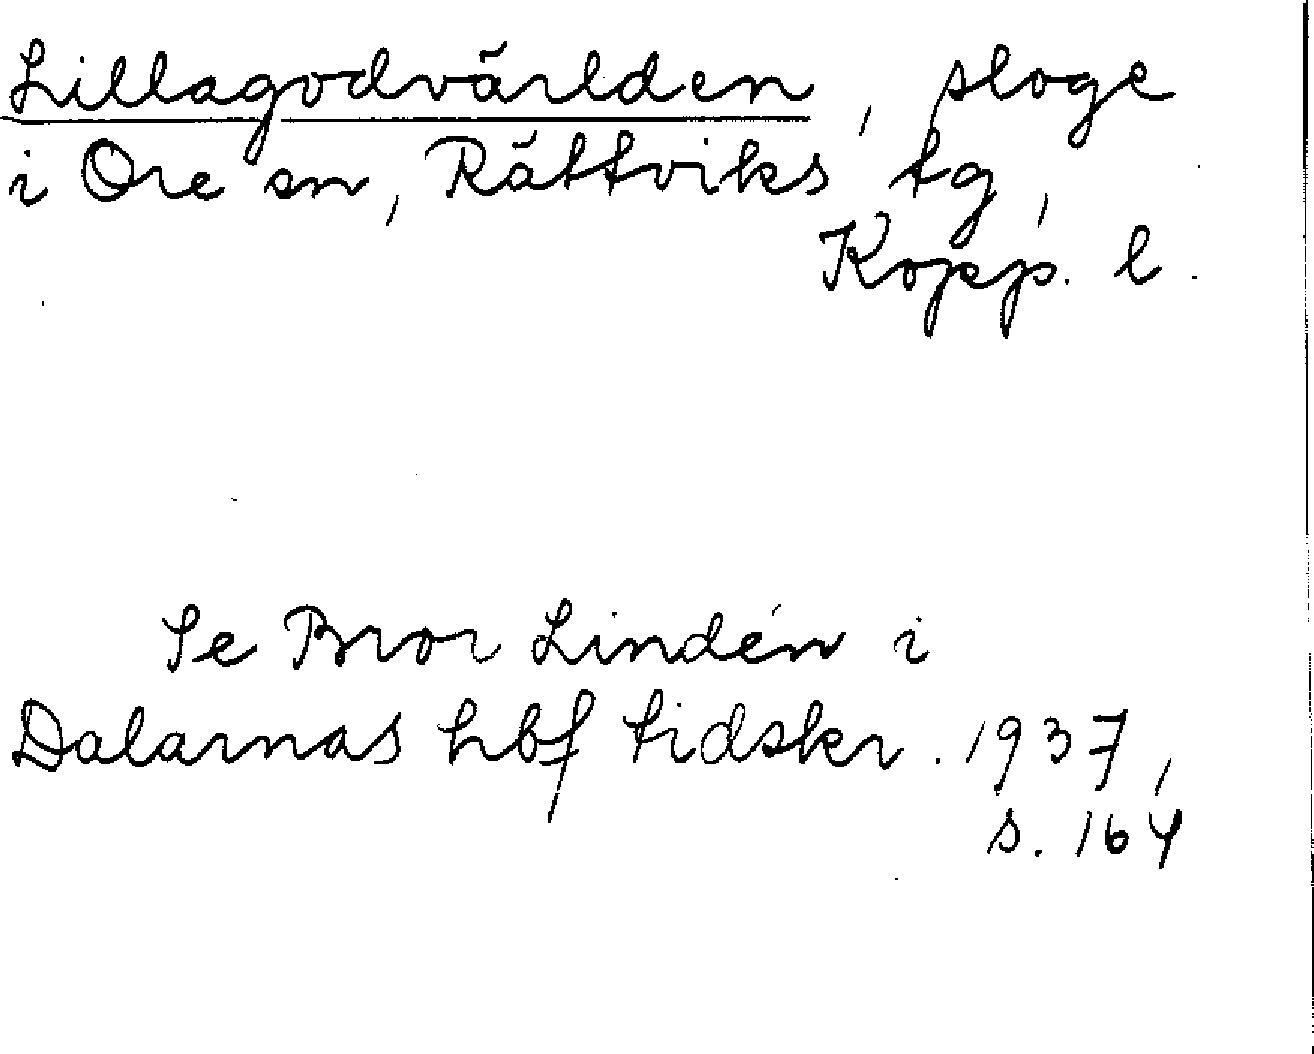 Lillagodvärlden, sloge
i Ore sn, Rättviks tg,
Kopp. l.
Se Bror Lindén i
Dalarnas hbf tidskr. 1937,
s. 164